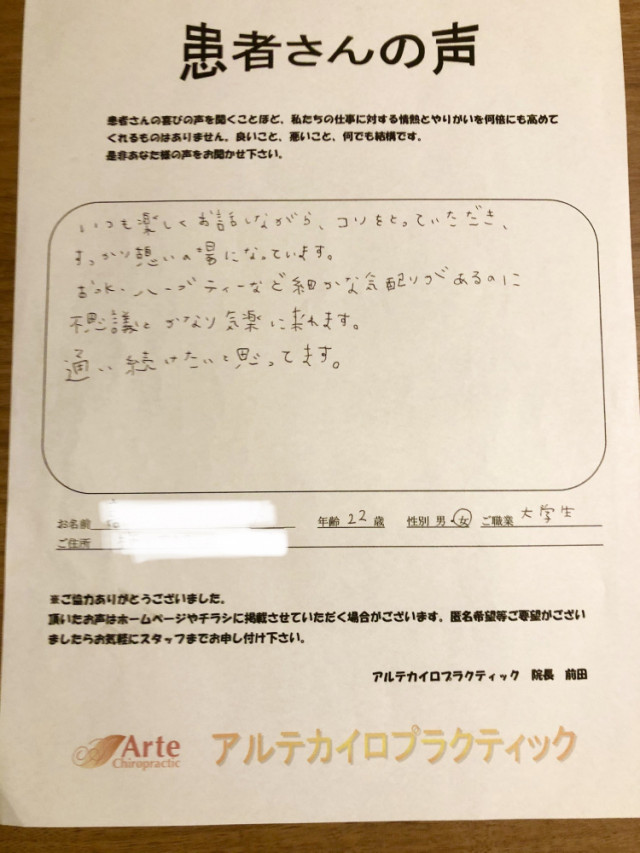 患者さんの声
患者さんの喜びの声を聞くことほど、私たちの仕事に対する情熱とやりがいを何倍にも高めて
くれるものはありません。良いこと、悪いこと、何でも結構です。
是非あなた様の声をお聞かせ下さい。
いつも楽しくお話しながら、コリをとっていただき、
すっかり憩いの場になっています。
お水・ハーブティーなど細かな気配りがあるのに
不思議とかなり気楽に来れます。
通い続けたいと思ってます。
お名前 年齢 22 歳 性別 男・女 ご職業 大学生
ご住所
※ご協力ありがとうございました。
頂いたお声はホームページやチラシに掲載させていただく場合がございます。匿名希望等ご要望がござい
ましたらお気軽にスタッフまでお申し付け下さい。
アルテカイロプラクティック 院長 前田
Arte アルテカイロプラクティック
Chiropractic